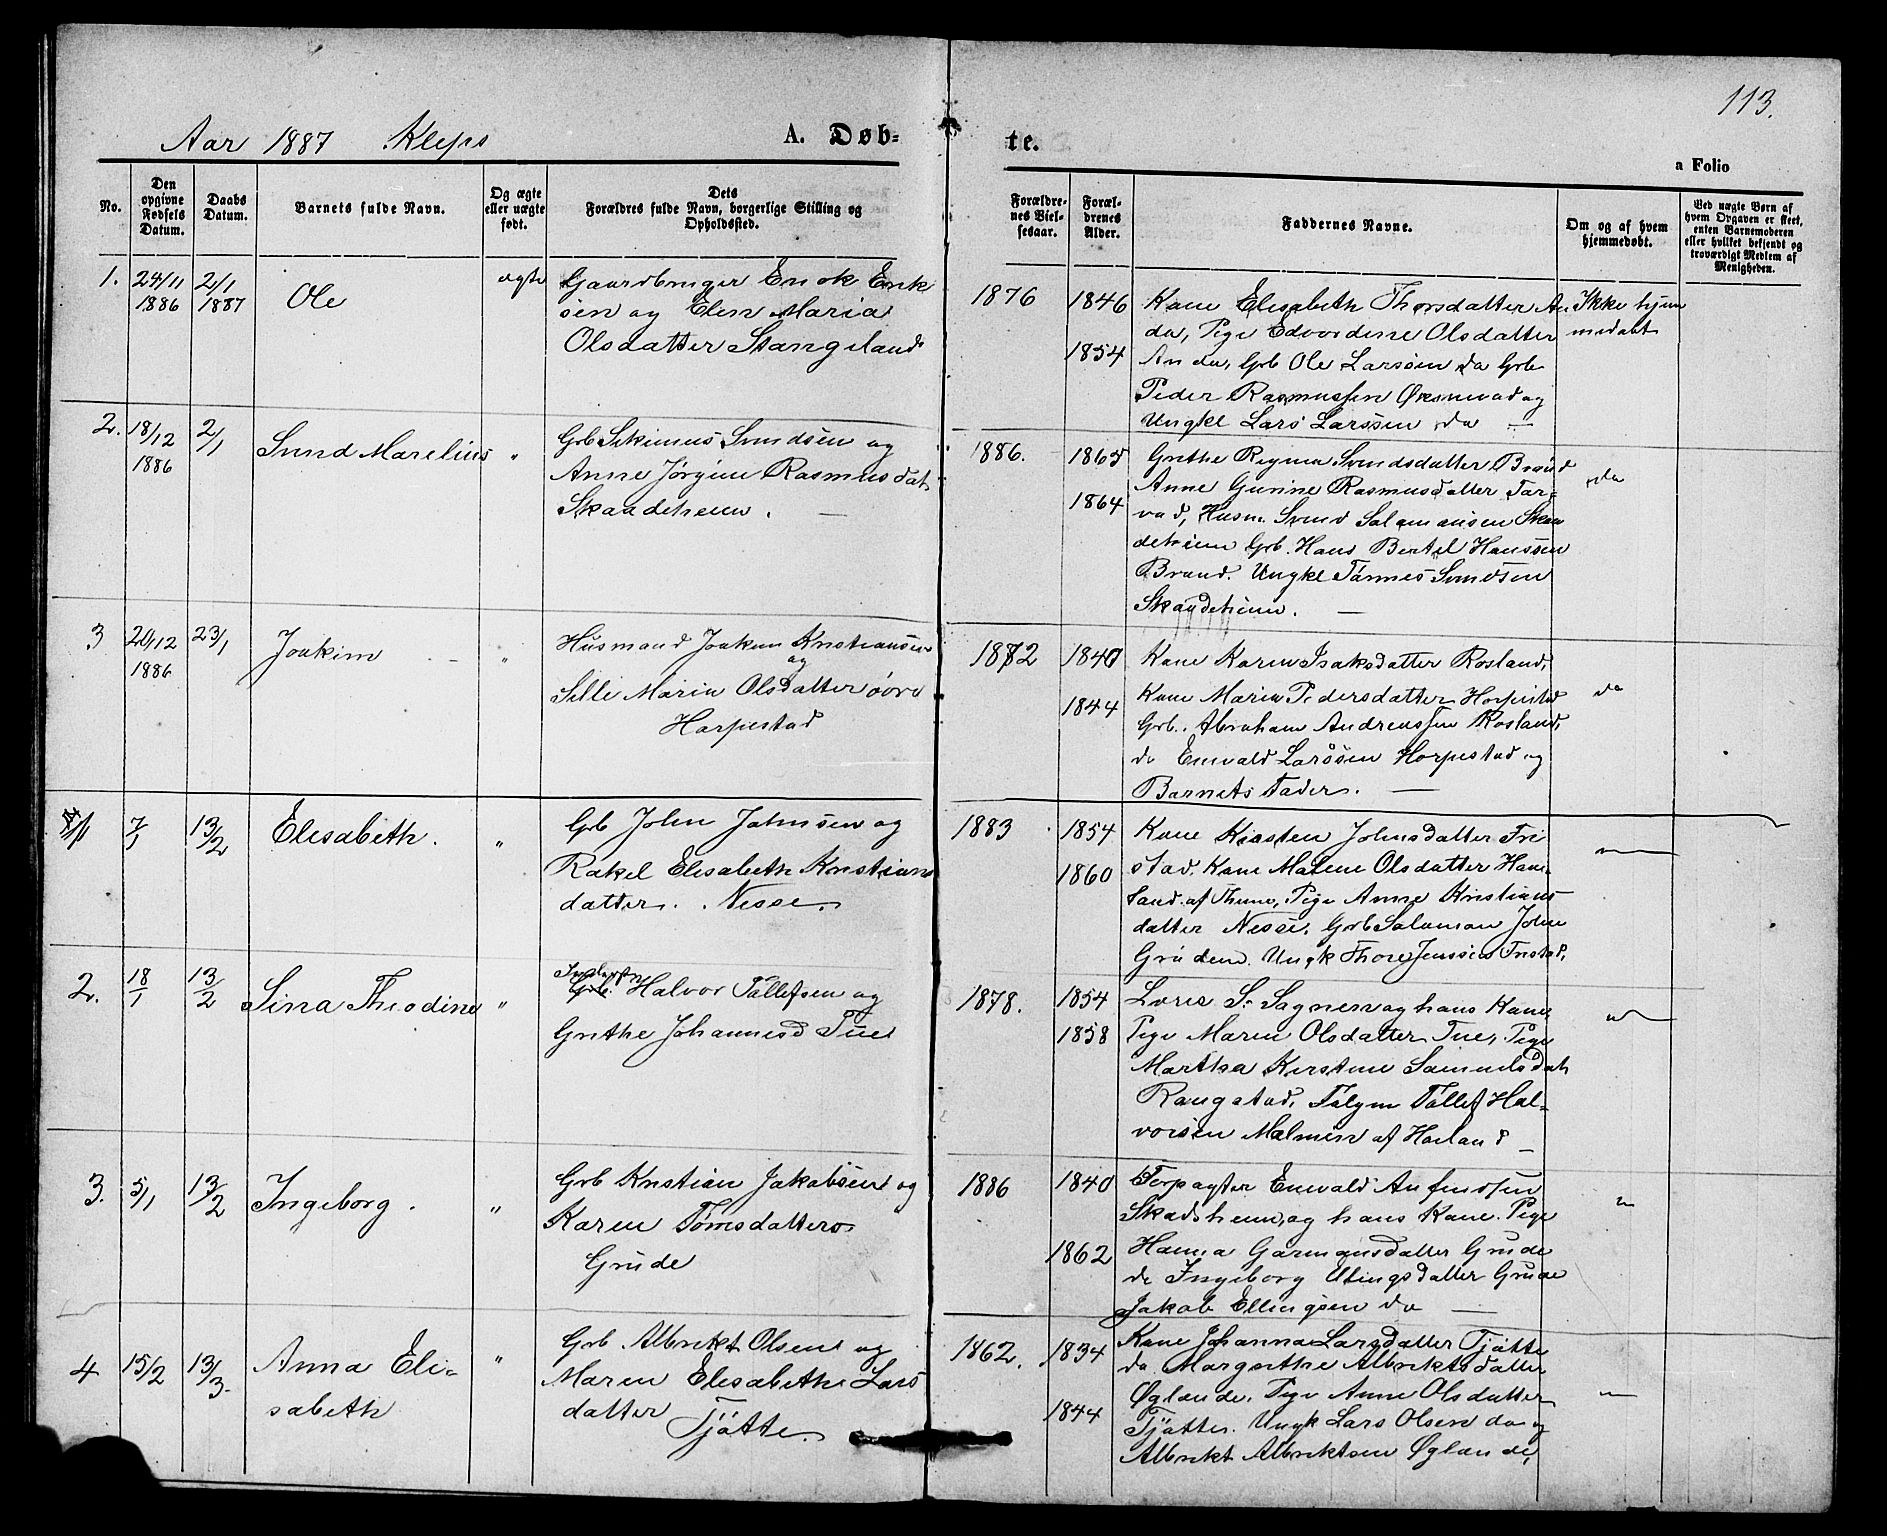 113.
Aar 1887 Klepp A. Døb= te.
a Folio
No.
Den opgivne Fødsels Datum.
Daabs Datum.
Barnets fulde Navn.
Og ægte eller uægte født.
Dets Forældres fulde Navn, borgerlige Stilling og Opholdssted.
Forældrenes Vielsesaar.
Forældrenes Alder.
Faddernes Navne.
Om og af hvem hjemmedøbt.
Ved uægte Børn af hvem Opgaven er skeet, enten Barnemoderen eller hvilket bekjendt og troværdigt Medlem af Menigheden.
1. 24/11 1886 2/1 1887 Ole ægte
Gaardbruger Enok Erik
sen og Elen Maria
Olsdatter Stangeland
1876 1846 1854
Kone Elisabeth Thorsdatter An
da, Pige Edvardine Olsdatter
Anda, Grb Ole Larsen da Grb
Peder Rasmussen Øksnevad og
Ungkl Lars Larssen da —
Ikke hjem
medøbt
2. 18/12 1886 2/1 Svend Marelius "
Grb Svendsen og
Anne Jørgine Rasmusdat
Skaadeheim. —
1886. 1865 1864
Grethe Regine Svendsdatter Braud
Anne Gurine Rasmusdatter Tar-
vad, Husm. Svend Salamonsen Skaa
deheim Grb. Hans Bertel Hanssen
Braud. Ungkl Tønnes Svendsen
Skaadeheim. —
da
3 20/12 1886 23/1 Joakim — "
Husmand Joakim Kristiansen
og
Silli Maria Olsdatter øvre
Horpestad
1872 1840 1844
Kone Karen Isaksdatter Rosland,
Kone Maria Pedersdatter Horpestad
Grb. Abraham Andreassen Rosland,
do Enevald Larssen Horpestad og
Barnets Fader. —
da
1 7/1 13/2 Elisabeth. "
Grb John Johnsen og
Rakel Elisabeth Kristians
datter. Nesse.
1883 1854 1860
Kone Kirsten Johnsdatter Fri
stad. Kone Malene Olsdatter Haue
land af Thime, Pige Anne Kristians
datter Nesse. Grb Salamon John
Gruden. Ungk Thore Jenssen Fristad.
2. 18/1 13/2 Sina Theodine "
Grb. Halvor Tollefsen og
Grethe Johannesd Tue
1878. 1854 1858
S. Sagnen og hans Kone,
Pige Maren Olsdatter Tue, Pige
Martha Kirstine Samuelsdat
Rangstad, Tollef Hal-
vorsen Malmin af Høiland —
3. 5/1 13/2 Ingeborg. "
Grb Kristian Jakobsen og
Karen Tømsdatter
Grude
1886 1840 1862
Forpagter Enevald Anfindsen
Skadsheim og hans Kone. Pige
Hanna Garmansdatter Grude
do Ingeborg Elingsdatter Grude
Jakob Ellingsen da —
4 15/2 13/3. Anna Eli-
sabeth "
Grb. Albrikt Olsen og
Maren Elisabeth Lars
datter
Tjøtte.
1862. 1834 1844
Kone Johanna Larsdatter Tjøtte
do Margrethe Albriktsdatter
Øglænde, Pige Anne Olsdatter
Tjøtte. Ungk Lars Olsen do og
Albrikt Albriktsen Øglænde,